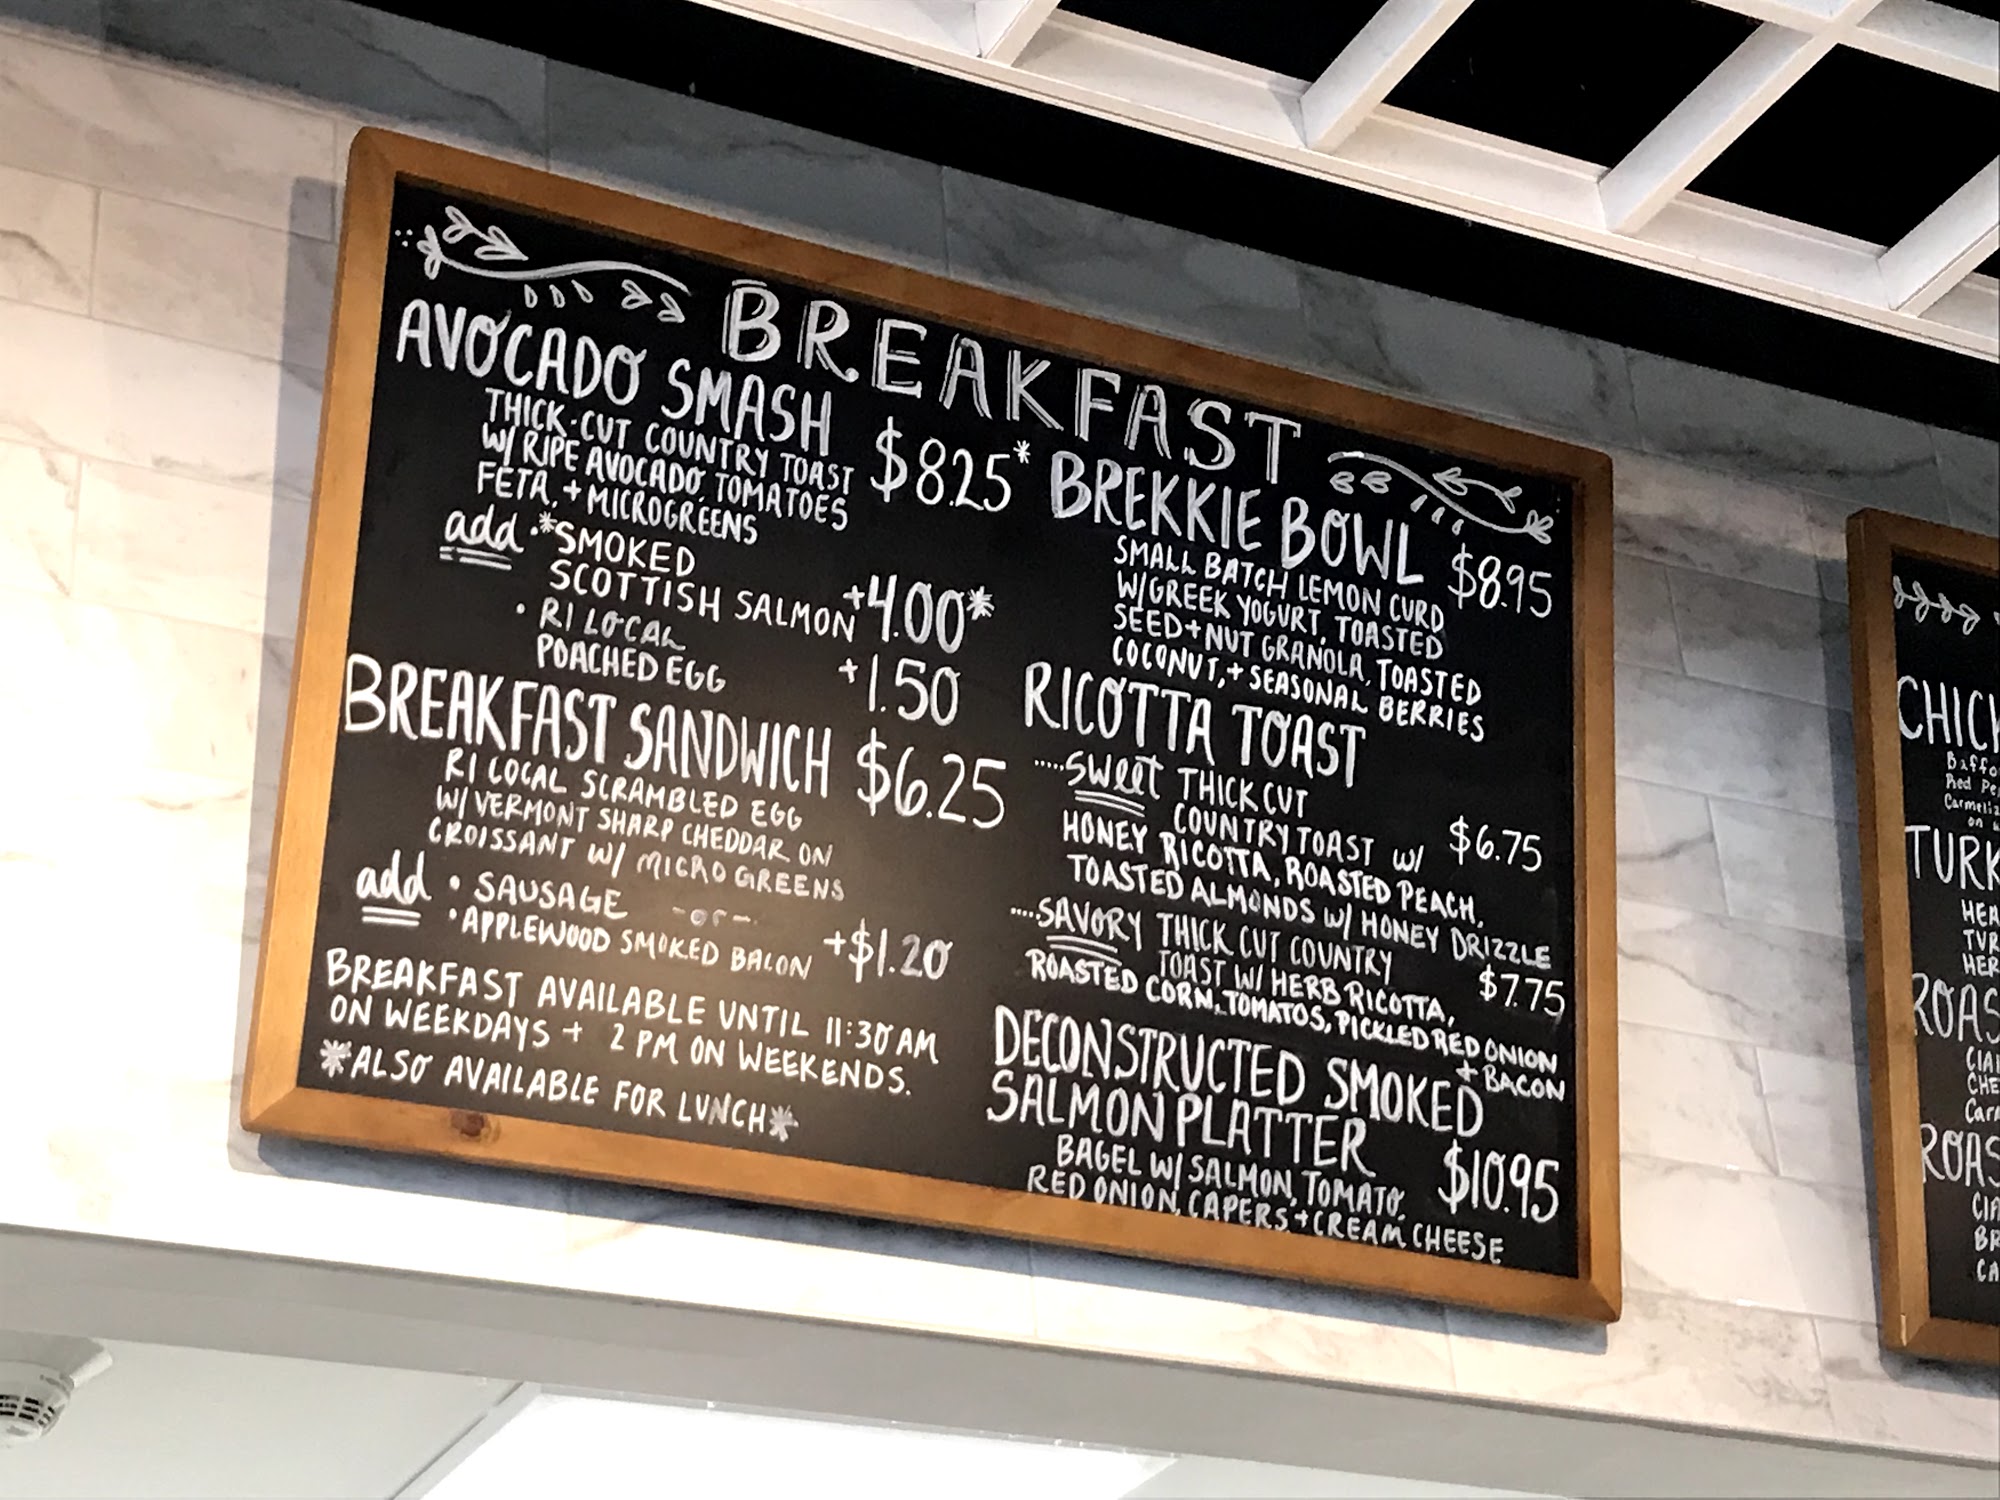 BREAKFAST
AVOCADO SMASH
THICK-CUT COUNTRY TOAST
W/ RIPE AVOCADO, TOMATOES
FETA, + MICROGREENS
$8.25*
add • *SMOKED
SCOTTISH SALMON +4.00*
• RI LOCAL
POACHED EGG +1.50
BREAKFAST SANDWICH $6.25
RI LOCAL SCRAMBLED EGG
W/ VERMONT SHARP CHEDDAR ON
CROISSANT W/ MICRO GREENS
add • SAUSAGE -or-
• APPLEWOOD SMOKED BACON +$1.20
BREAKFAST AVAILABLE UNTIL 11:30 AM
ON WEEKDAYS + 2 PM ON WEEKENDS.
*ALSO AVAILABLE FOR LUNCH*
BREKKIE BOWL $8.95
SMALL BATCH LEMON CURD
W/GREEK YOGURT, TOASTED
SEED+NUT GRANOLA, TOASTED
COCONUT, + SEASONAL BERRIES
RICOTTA TOAST
.....sweet THICK CUT
COUNTRY TOAST w/ $6.75
HONEY RICOTTA, ROASTED PEACH,
TOASTED ALMONDS W/ HONEY DRIZZLE
....SAVORY THICK CUT COUNTRY
TOAST W/ HERB RICOTTA, $7.75
ROASTED CORN, TOMATOS, PICKLED RED ONION
+ BACON
DECONSTRUCTED SMOKED
SALMON PLATTER $10.95
BAGEL W/ SALMON, TOMATO,
RED ONION, CAPERS + CREAM CHEESE
CHICK
Red Pe
on
TURK
HEA
TUR
HER
ROAS
CIA
CHE
Car
ROAS
CIA
BR
CA